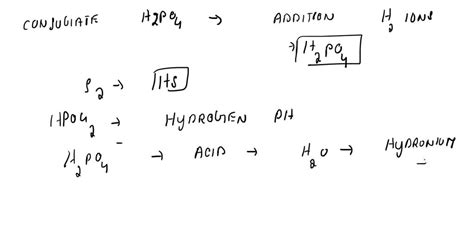 CONJUGIATE H2PO4 → ADDITION H2 IONS
→ H2PO4
S2 → HS
HPO42 → HYDROGEN PH
H2PO4⁻ → ACID → H2O → HYDRONIUM